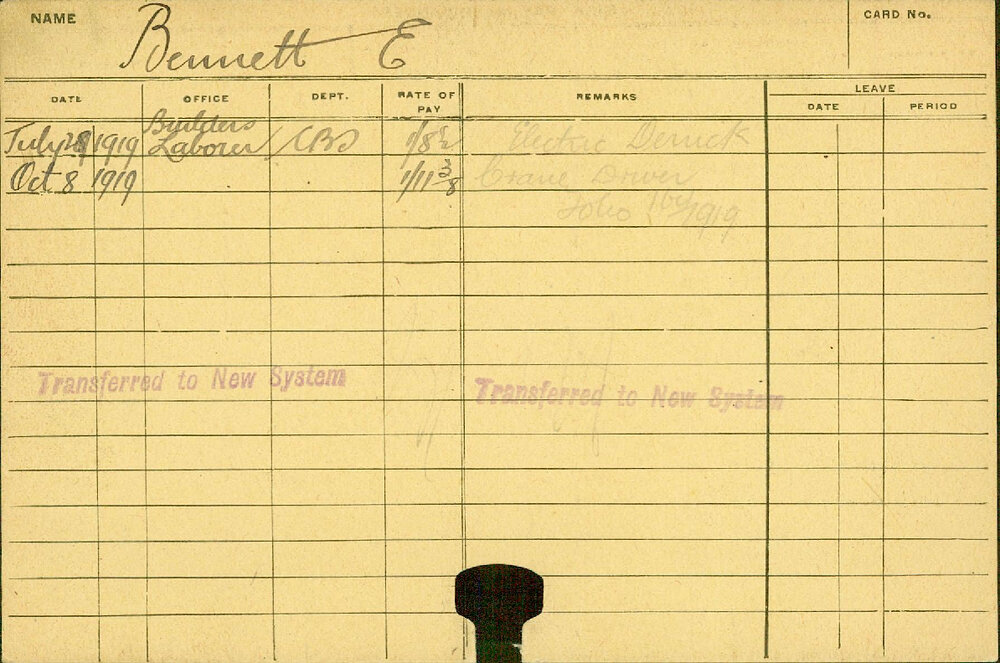 NAME
Bennett E
CARD No.
DATE OFFICE DEPT. RATE OF PAY REMARKS LEAVE
DATE PERIOD
Builders
July 1919 Laborer CBS 1/8½ Electric Derrick
Oct 8 1919 1/11 3/8 Crane Driver
Folio 1919
Transferred to New System
Transferred to New System